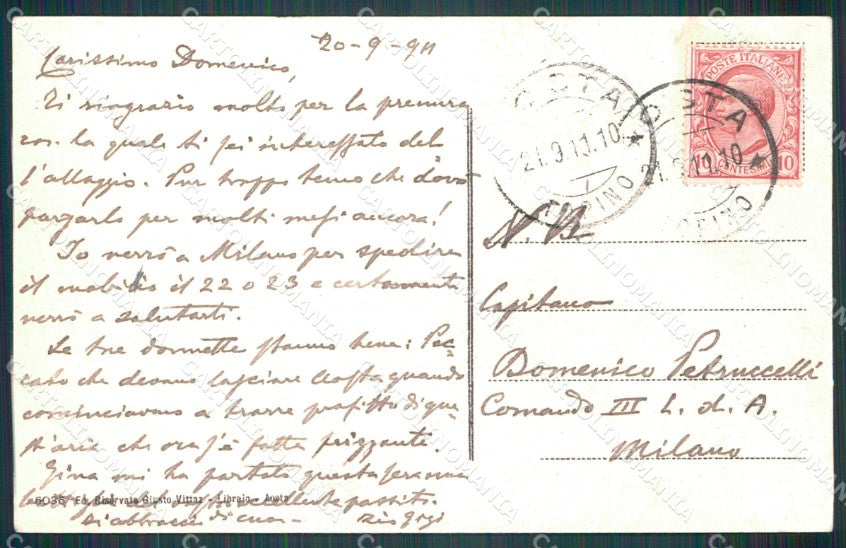 20-9-911
Carissimo Domenico,
Ti ringrazio molto per la premura
con la quale ti sei interessato del
l'alloggio. Pur troppo temo che dovrò
pagarlo per molti mesi ancora!
Io verrò a Milano per spedire
il mobilio il 22 o 23 e certamente
verrò a salutarti.
Le tre donnette stanno bene: Pec-
cato che devano lasciare Aosta quando
cominciavano a trarre profitto di que-
st'aria che ora s'è fatta frizzante.
Gina mi ha portato questa
eccellente
Ti abbraccio di cuore
6036 Ed. Riservata Giusto Vittaz - Libraio - Aosta
AOSTA
21.9.11.10
TORINO
AOSTA
21.9.11.10
TORINO
POSTE ITALIANE
10 CENTESIMI 10
Capitano
Domenico Petruccelli
Comando III
Milano
CARTOLINOMANIA